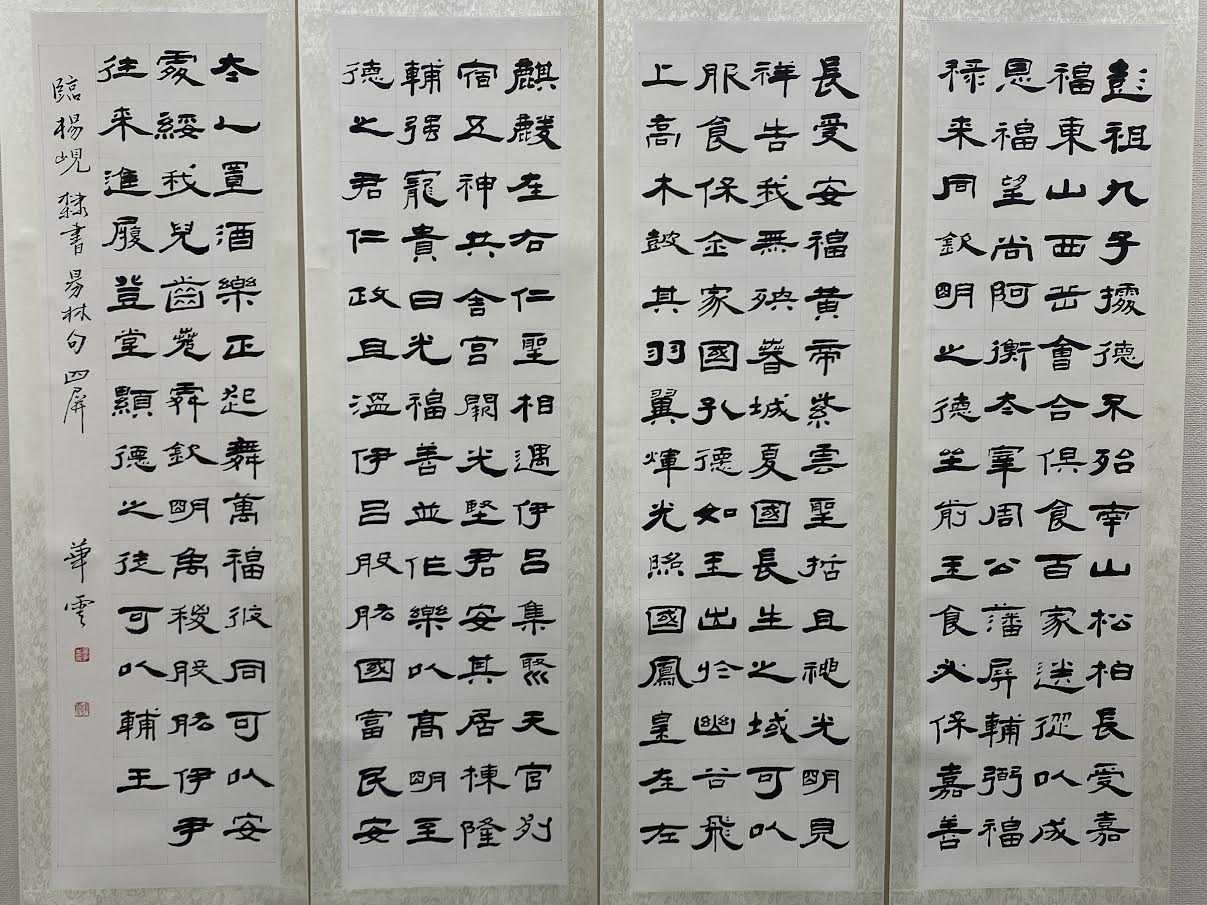 彭祖九子據德不殆南山松柏長受嘉
福東山西岳會合俱食百家送從以成
恩福望尚阿衡太宰周公藩屏輔弼福
祿来同欽明之德坐前玉食必保嘉善
長受安福黃帝紫雲聖哲且神光明見
祥告我無殃眷城夏國長生之域可以
服食保金家國孔德如玉出於幽谷飛
上高木鼓其羽翼煇光照國鳳皇在左
麒麟在右仁聖相遇伊呂集聚天官列
宿五神共舍宮闕光堅君安其居棟隆
輔强寵貴日光福善並作樂以高明至
德之君仁政且溫伊呂股肱國富民安
太人置酒樂正起舞萬福攸同可以安
處綏我兒齒堯舜欽明禹稷股肱伊尹
往来進履登堂顯德之徒可以輔王
臨楊峴隸書易林句四屏 華雲